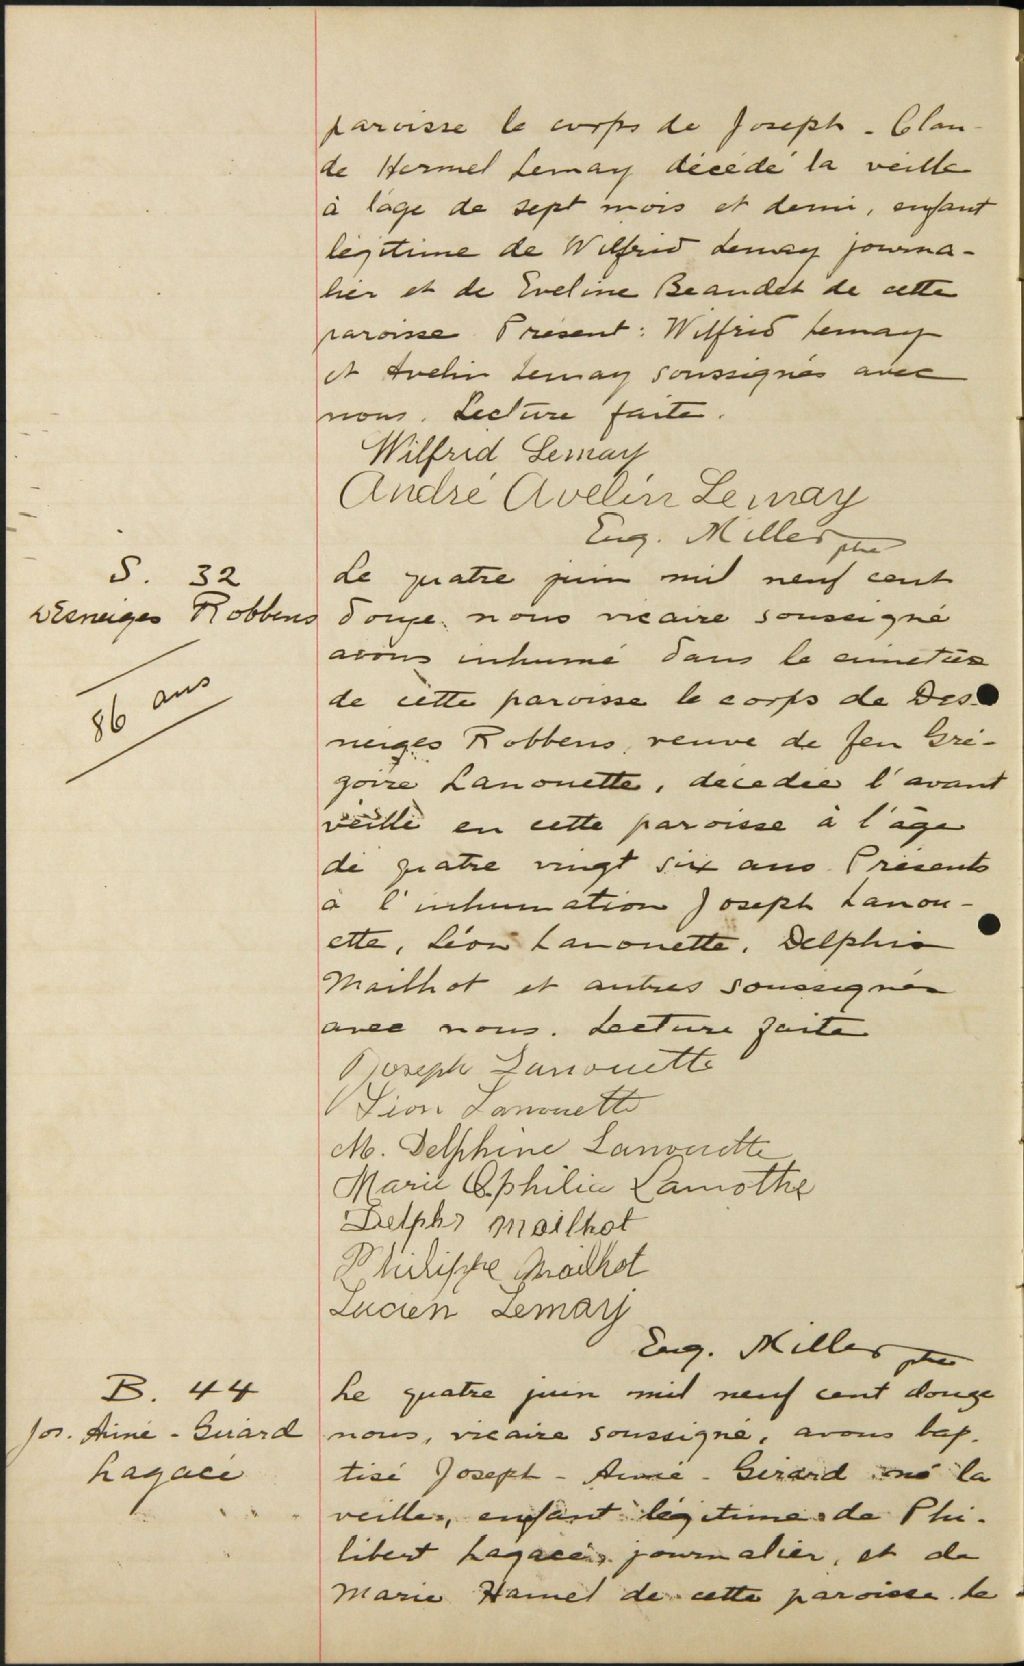 paroisse le corps de Joseph - Clau-
de Hermel Lemay décédé la veille
à l'âge de sept mois et demi, enfant
légitime de Wilfrid Lemay journa-
lier et de Eveline Beaudet de cette
paroisse Présent: Wilfrid Lemay
et Avelin Lemay soussignés avec
nous. Lecture faite.
Wilfrid Lemay
André Avelin Lemay
Eug. Miller ptre
S. 32
DesNeiges Robbens
86 ans
Le quatre juin mil neuf cent
douze, nous vicaire soussigné
avons inhumé dans le cimetière
de cette paroisse le corps de Des-
neiges Robbens, veuve de feu Gré-
goire Lanouette, décédée l'avant
veille en cette paroisse à l'âge
de quatre vingt six ans. Présents
à l'inhumation Joseph Lanou-
ette, Léon Lanouette, Delphis
Mailhot et autres soussignés
avec nous. Lecture faite
Joseph Lanouette
Léon Lanouette
M. Delphine Lanouette
Marie Ophilia Lamothe
Delphis Mailhot
Philippe Mailhot
Lucien Lemay
Eug. Miller ptre
B. 44
Jos. Aimé - Girard
Lagacé
Le quatre juin mil neuf cent douze
nous, vicaire soussigné, avons bap-
tisé Joseph - Aimé - Girard né la
veille, enfant légitime de Phi-
libert Lagacé, journalier, et de
Marie Hamel de cette paroisse. Le